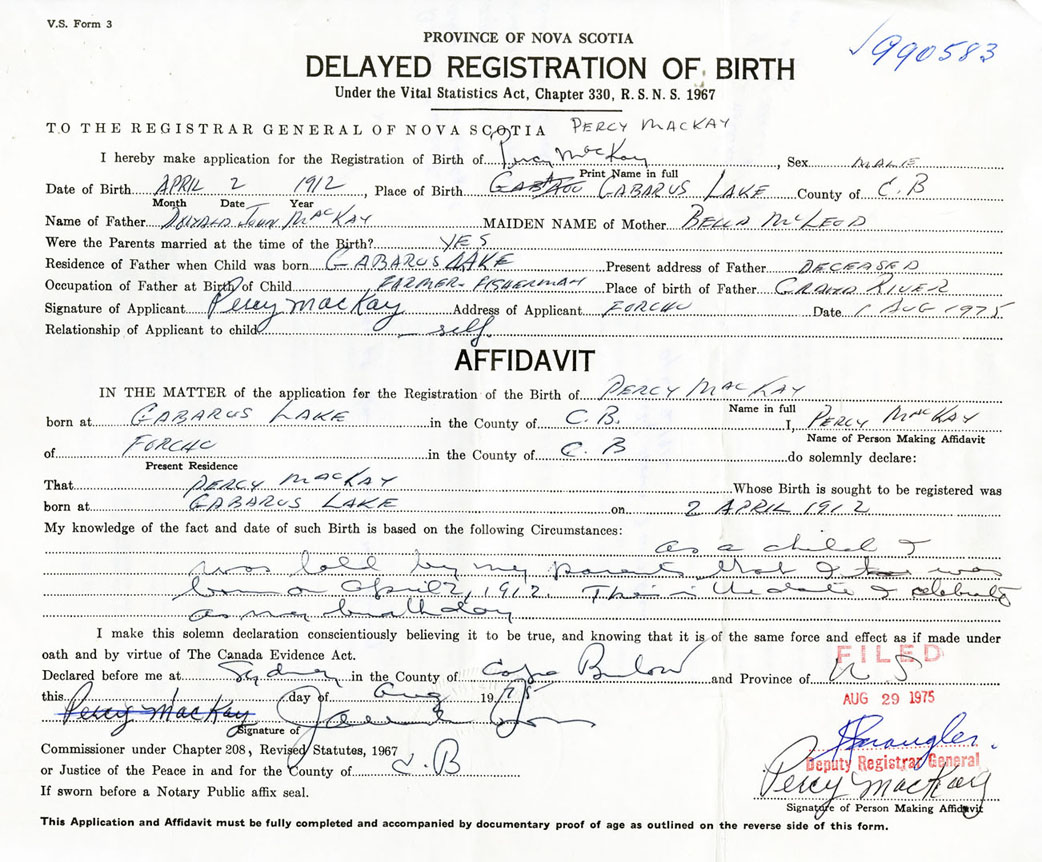 V.S. Form 3
PROVINCE OF NOVA SCOTIA
990583
DELAYED REGISTRATION OF BIRTH
Under the Vital Statistics Act, Chapter 330, R. S. N. S. 1967
TO THE REGISTRAR GENERAL OF NOVA SCOTIA PERCY MACKAY
I hereby make application for the Registration of Birth of Percy MacKay, Sex MALE
Print Name in full
Date of Birth APRIL 2 1912, Place of Birth GABARUS LAKE County of C.B
Month Date Year
Name of Father DONALD JOHN MACKAY MAIDEN NAME of Mother BELLA McLEOD
Were the Parents married at the time of the Birth? YES
Residence of Father when Child was born GABARUS LAKE Present address of Father DECEASED
Occupation of Father at Birth of Child FARMER-FISHERMAN Place of birth of Father GRAND RIVER
Signature of Applicant Percy MacKay Address of Applicant FORCHU Date 1 AUG 1975
Relationship of Applicant to child self
AFFIDAVIT
IN THE MATTER of the application for the Registration of the Birth of PERCY MACKAY
Name in full
born at GABARUS LAKE in the County of C.B. I, PERCY MACKAY
Name of Person Making Affidavit
of FORCHU in the County of C.B do solemnly declare:
Present Residence
That PERCY MACKAY Whose Birth is sought to be registered was
born at GABARUS LAKE on 2 APRIL 1912
My knowledge of the fact and date of such Birth is based on the following Circumstances:
as a child I
was told by my parents that I was
born on April 2, 1912. This is the date I celebrate
as my birthday
I make this solemn declaration conscientiously believing it to be true, and knowing that it is of the same force and effect as if made under
oath and by virtue of The Canada Evidence Act.
FILED
Declared before me at Sydney in the County of Cape Breton and Province of N S
this day of Aug 1975
AUG 29 1975
Percy MacKay
Signature of
Commissioner under Chapter 208, Revised Statutes, 1967
or Justice of the Peace in and for the County of C.B
Deputy Registrar General
Percy MacKay
If sworn before a Notary Public affix seal.
Signature of Person Making Affidavit
This Application and Affidavit must be fully completed and accompanied by documentary proof of age as outlined on the reverse side of this form.